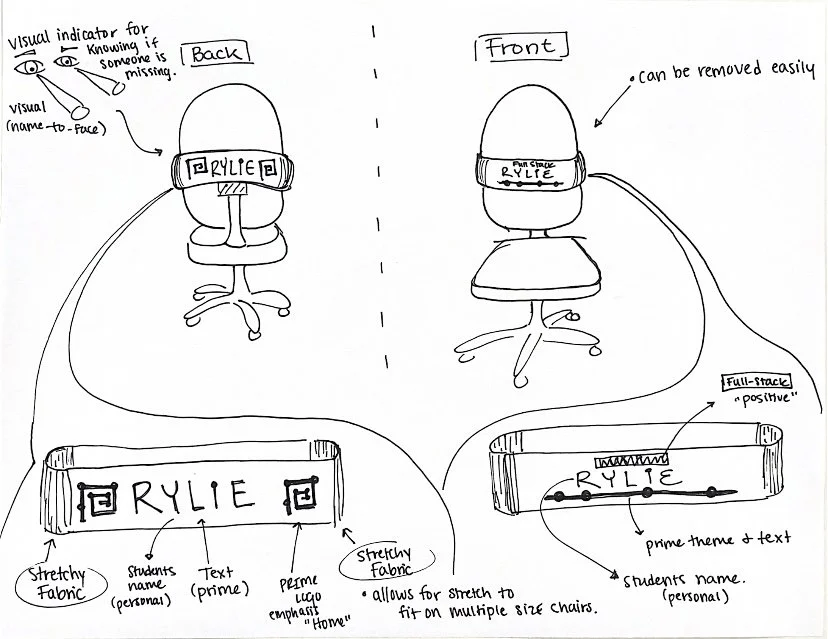 Visual indicator for
Knowing if
someone is
missing.
visual
(name-to-face)
Back
RYLIE
Front
• can be removed easily
Full Stack
RYLIE
RYLIE
Stretchy
Fabric
Students
name
(personal)
Text
(prime)
PRIME
LOGO
emphasis
"Home"
Stretchy
Fabric
• allows for stretch to
fit on multiple size chairs.
Full-Stack
"positive"
RYLIE
prime theme & text
Students name.
(personal)